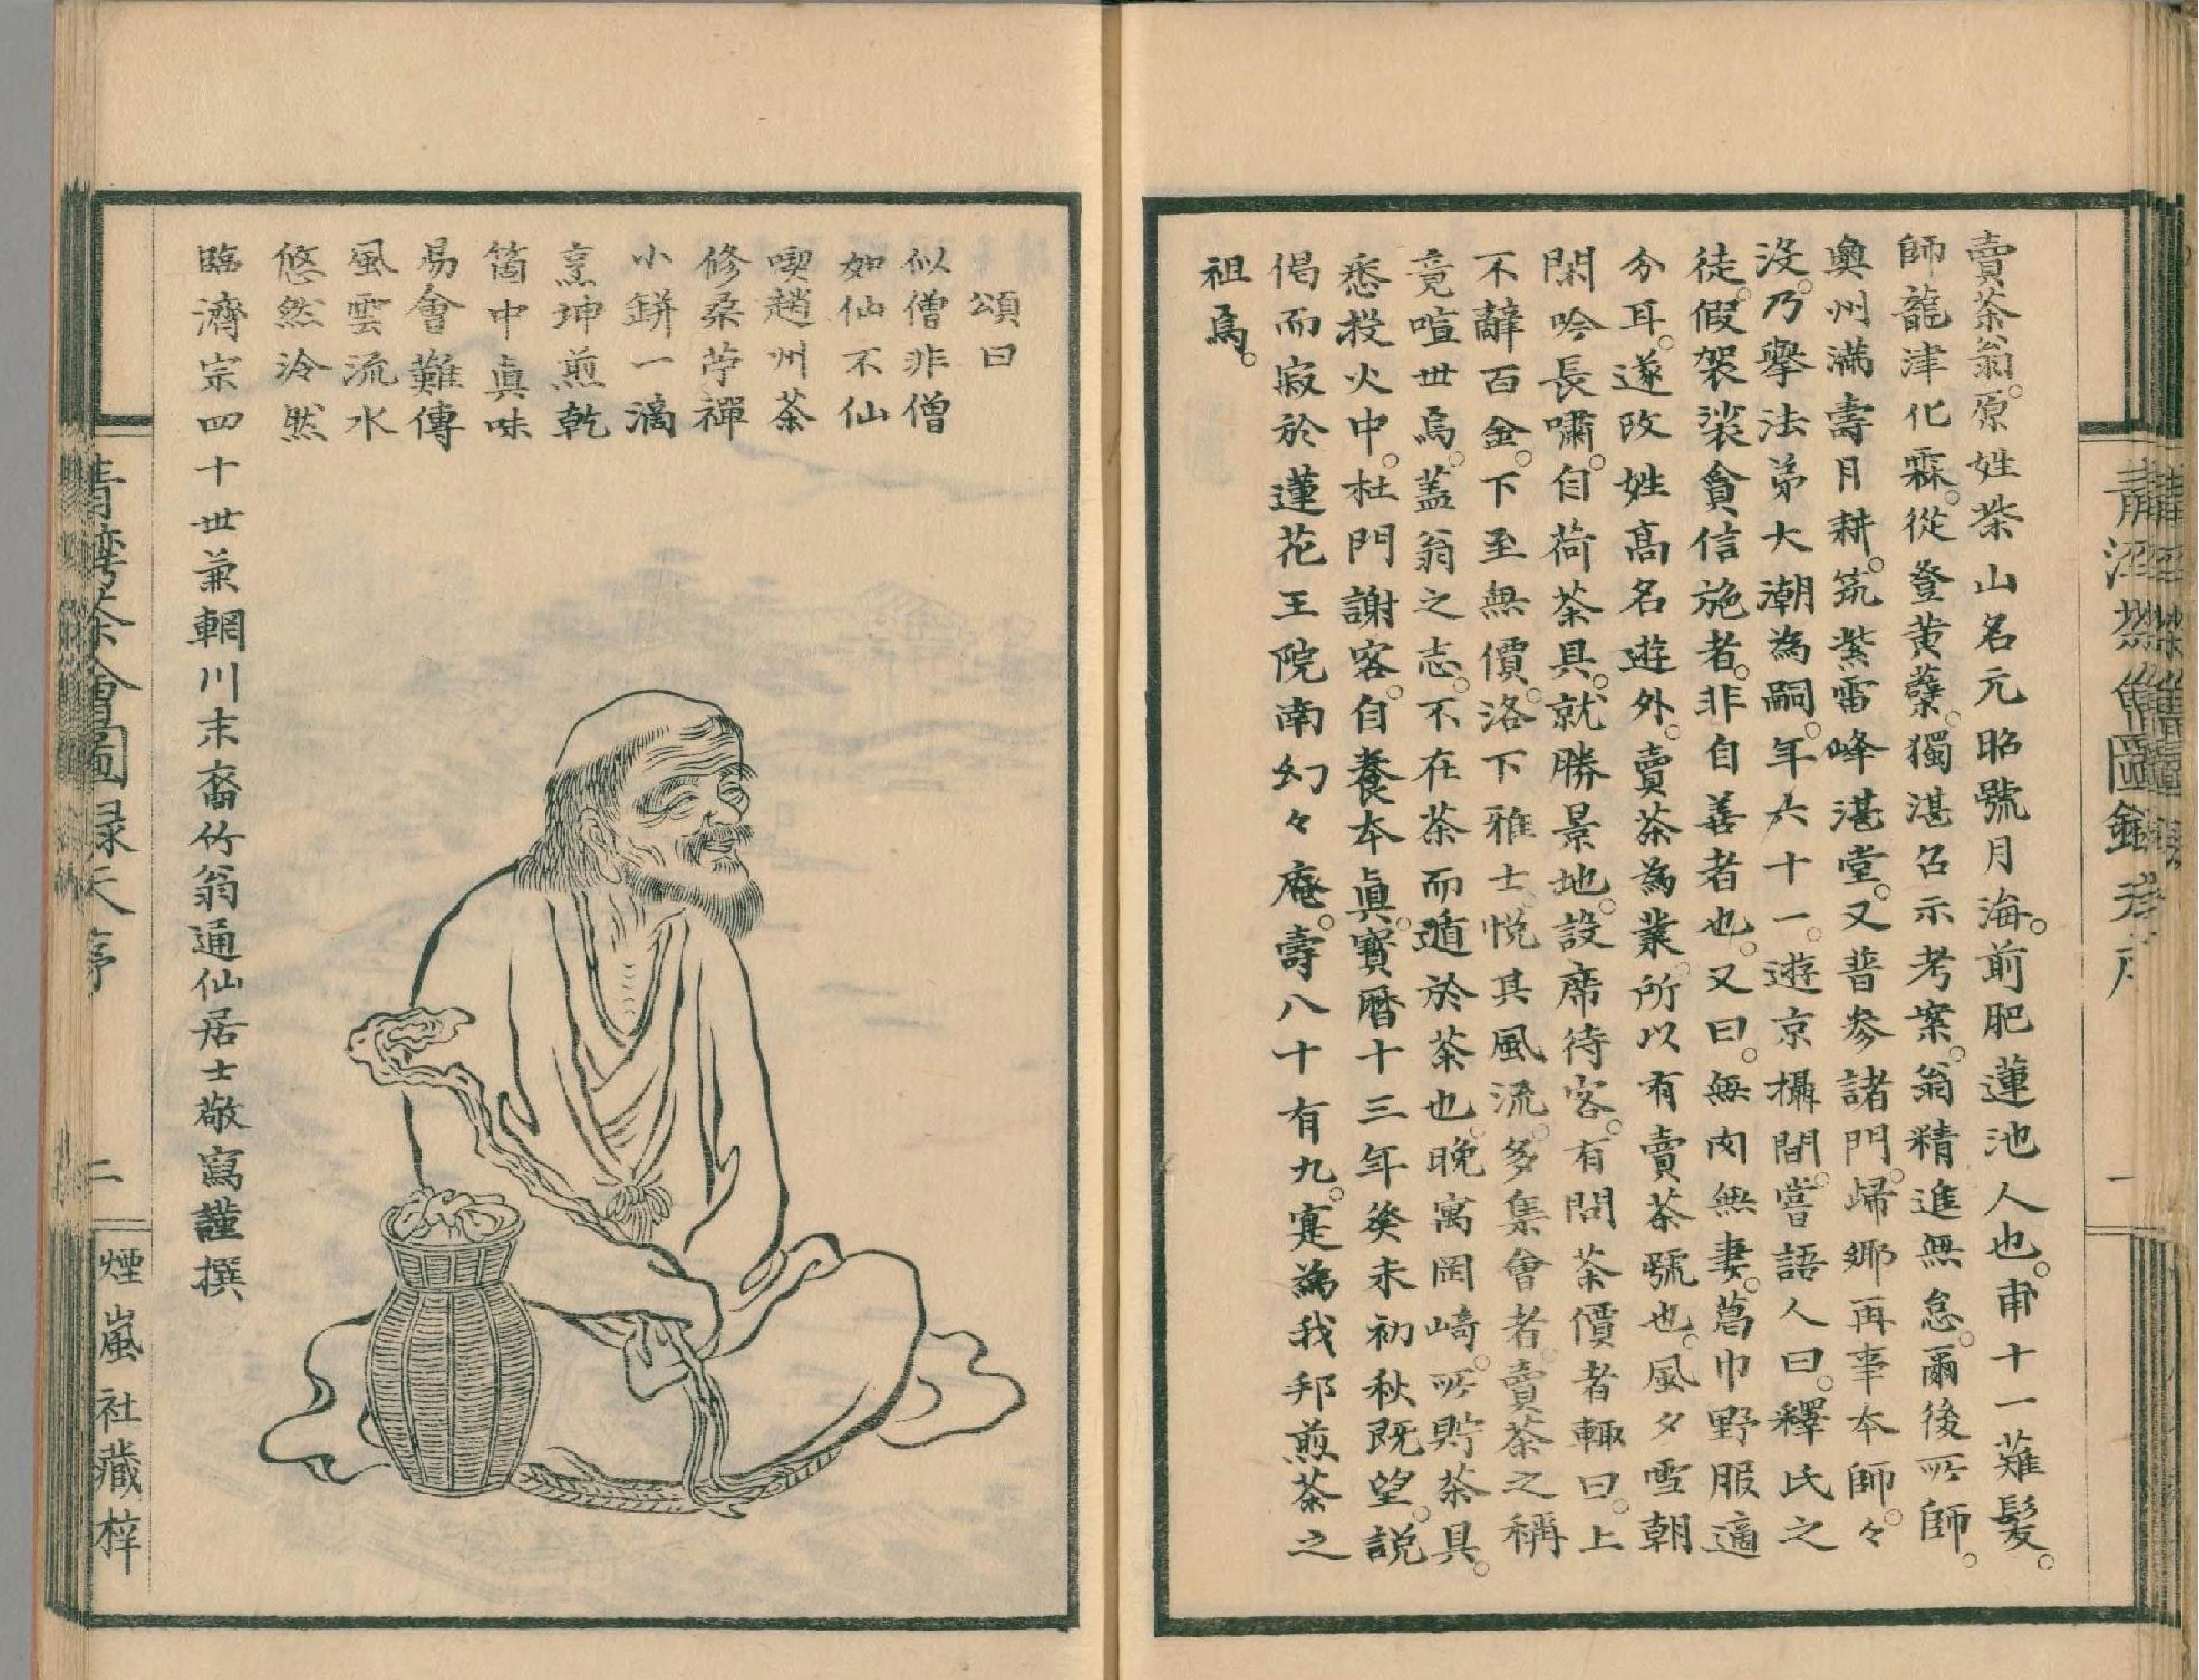 賣茶翁。原姓柴山名元昭號月海。前肥蓮池人也。甫十一薙髮。
師龍津化霖。從登黄蘗。獨湛召示考案。翁精進無怠。爾後所師。
奥州滿壽月耕。筑紫雷峰湛堂。又普參諸門。歸鄉再事本師。々
沒。乃擧法弟大潮為嗣。年六十一。遊京攝間。嘗語人曰。釋氏之
徒。假袈裟貪信施者。非自善者也。又曰。無肉無妻。葛巾野服適
分耳。遂改姓髙名遊外。賣茶為業。所以有賣茶號也。風夕雪朝
閑吟長嘯。自荷茶具。就勝景地。設席待客。有問茶價者輙曰。上
不辭百金。下至無價。洛下雅士。悦其風流。多集會者。賣茶之稱
竟喧世焉。蓋翁之志。不在茶而遁於茶也。晚寓岡﨑。所貯茶具。
悉投火中。杜門謝客。自養本眞。寳暦十三年癸未初秋既望。説
偈而寂於蓮花王院南幻々庵。壽八十有九。寔為我邦煎茶之
祖焉。
一
頌曰
似僧非僧
如仙不仙
喫趙州茶
修桑苧禪
小缾一滴
烹坤煎乾
箇中眞味
易會難傳
風雲流水
悠然泠然
臨濟宗四十世兼輞川末裔竹翁通仙居士敬寫謹撰
青灣茶會圖録天序
二
煙嵐社藏梓